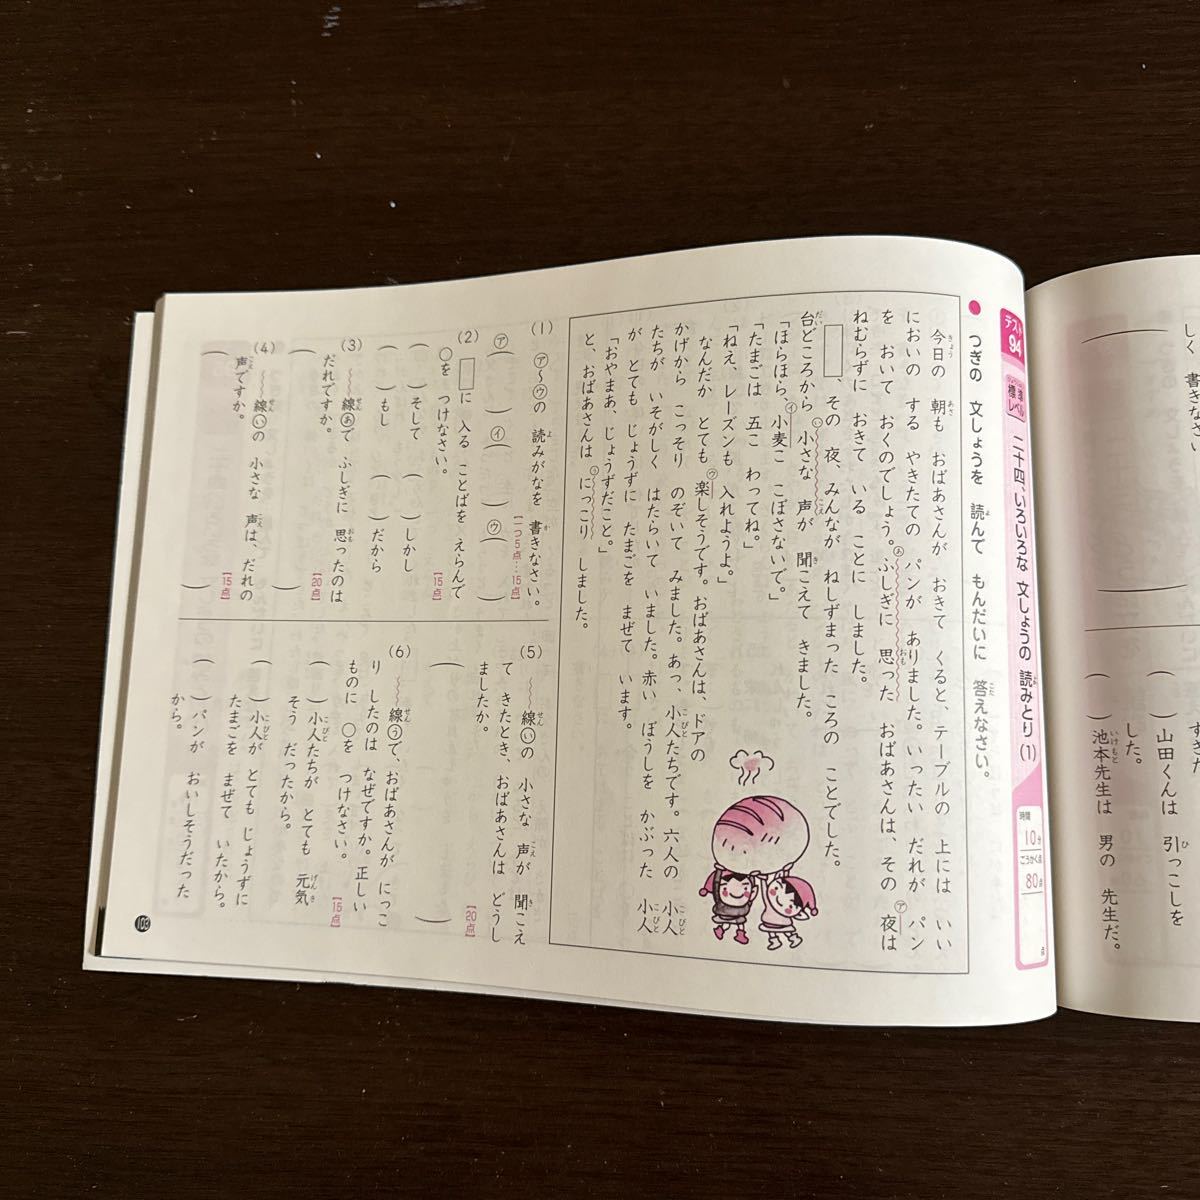 しく
書きなさい
すぎた
(　)山田くんは 引っこしを
した。
(　)池本先生は 男の 先生だ。
テスト94 標準レベル 二十四、いろいろな 文しょうの 読みとり(1)
時間 10分 ごうかく点 80点 点
● つぎの 文しょうを 読んで もんだいに 答えなさい。
今日の 朝も おばあさんが おきて くると、テーブルの 上には いい
においの する やきたての パンが ありました。いったい だれが パン
を おいて おくのでしょう。ふしぎに 思った おばあさんは、その 夜は
ねむらずに おきて いる ことに しました。
□、その 夜、みんなが ねしずまった ころの ことでした。
台どころから 小さな 声が 聞こえて きました。
「ほらほら、小麦こ こぼさないで。」
「たまごは 五こ わってね。」
「ねえ、レーズンも 入れようよ。」
なんだか とても 楽しそうです。おばあさんは、ドアの
かげから こっそり のぞいて みました。あっ、小人たちです。六人の 小人
たちが いそがしく はたらいて いました。赤い ぼうしを かぶった 小人
が とても じょうずに たまごを まぜて います。
「おやまあ、じょうずだこと。」
と、おばあさんは にっこり しました。
(1) ㋐～㋒の 読みがなを 書きなさい。
【一つ5点…15点】
㋐(　) ㋑(　) ㋒(　)
(2) □に 入る ことばを えらんで
○を つけなさい。 【15点】
(　)そして (　)しかし
(　)もし (　)だから
(3) 線㋐で ふしぎに 思ったのは
だれですか。 【20点】
(　)
(4) 線㋑の 小さな 声は、だれの
声ですか。 【15点】
(　)
(5) 線㋑の 小さな 声が 聞こえ
て きたとき、おばあさんは どうし
ましたか。 【20点】
(　)
(6) 線㋒で、おばあさんが にっこ
り したのは なぜですか。正しい
ものに ○を つけなさい。 【15点】
(　)小人たちが とても 元気
そう だったから。
(　)小人が とても じょうずに
たまごを まぜて いたから。
(　)パンが おいしそうだった
から。
103